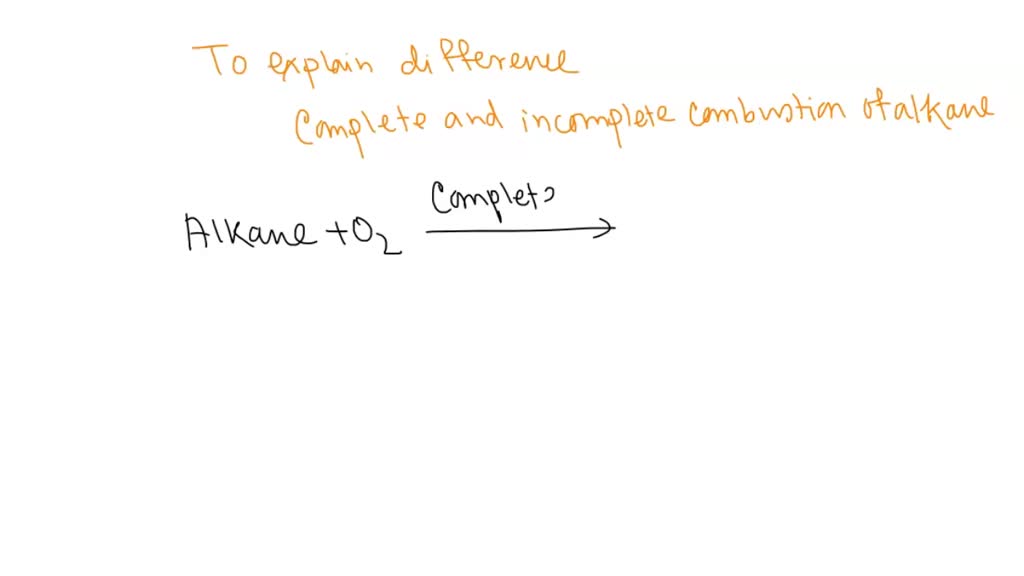 To explain difference
Complete and incomplete combustion of alkane
Complete
Alkane + O2